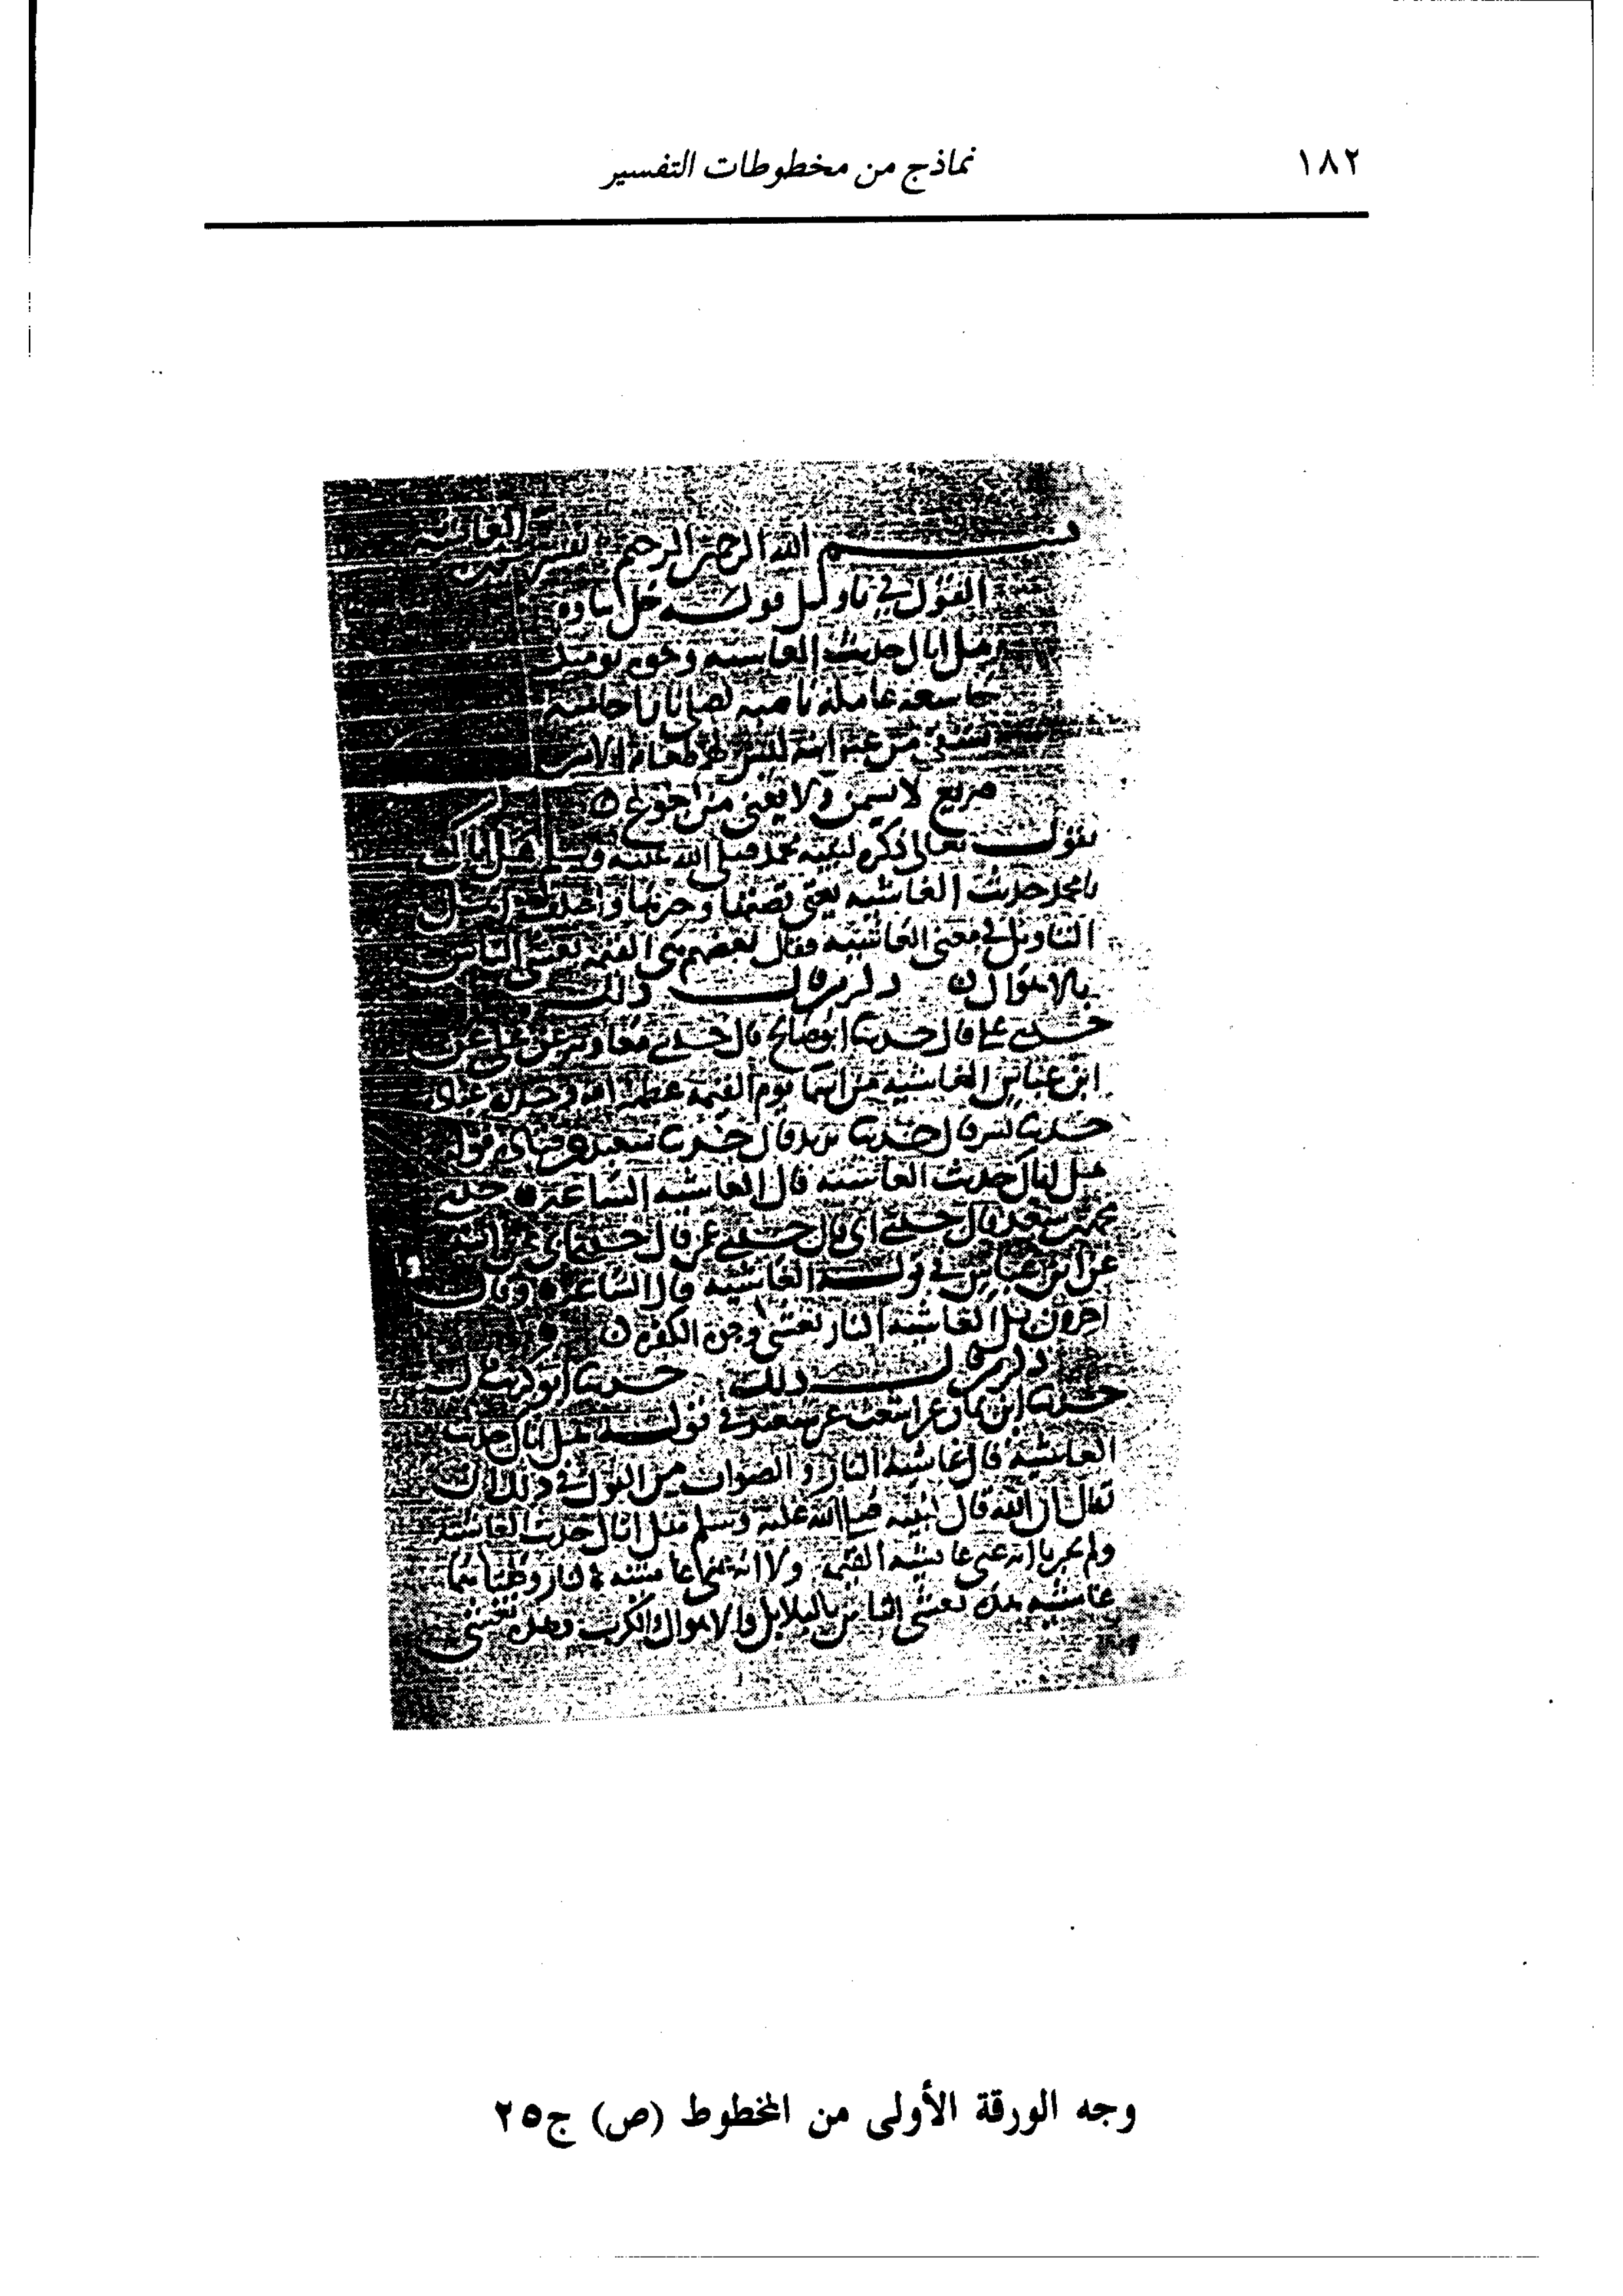 ١٨٢
نماذج من مخطوطات التفسير
بسم الله الرحمن الرحيم تفسير الغاشية
القول في تاويل قوله جل ثناوه
هل اتاك حديث الغاشية وجوه يوميذ
خاشعة عاملة ناصبة تصلى نارا حامية
تسقى من عين انية ليس لهم طعام الا من
ضريع لا يسمن ولا يغنى من جوع
يقول تعالى ذكره لنبيه محمد صلى الله عليه وسلم هل اتاك
يا محمد حديث الغاشية يعنى قصتها وخبرها واختلف اهل
التاويل في معنى الغاشية فقال بعضهم هي القيمة تغشى الناس
بالاهوال ذكر من قال ذلك
حدثني علي قال حدثنا ابو صالح قال حدثني معاوية عن علي عن
ابن عباس الغاشية من اسما يوم القيمة عظمه الله وحذره عباده
حدثنا بشر قال حدثنا يزيد قال حدثنا سعيد عن قتادة قوله
هل اتاك حديث الغاشية قال الغاشية الساعة حدثني
محمد بن سعد قال حدثني ابي قال حدثني عمي قال حدثني ابي عن ابيه
عن ابن عباس في قوله الغاشية قال الساعة وقال
اخرون بل الغاشية النار تغشى وجوه الكفرة
ذكر من قال ذلك حدثنا ابو كريب قال
حدثنا ابن يمان عن اشعث عن سعيد في قوله هل اتاك حديث
الغاشية قال غاشية النار والصواب من القول في ذلك ان
يقال ان الله قال لنبيه صلى الله عليه وسلم هل اتاك حديث الغاشية
ولم يخبرنا انه عنى غاشية القيمة ولا انه عنى غاشية النار وكلتاهما
غاشية هذه تغشى الناس بالبلابل والاهوال والكرب وهذه تغشى
وجه الورقة الأولى من المخطوط (ص) ج٢٥